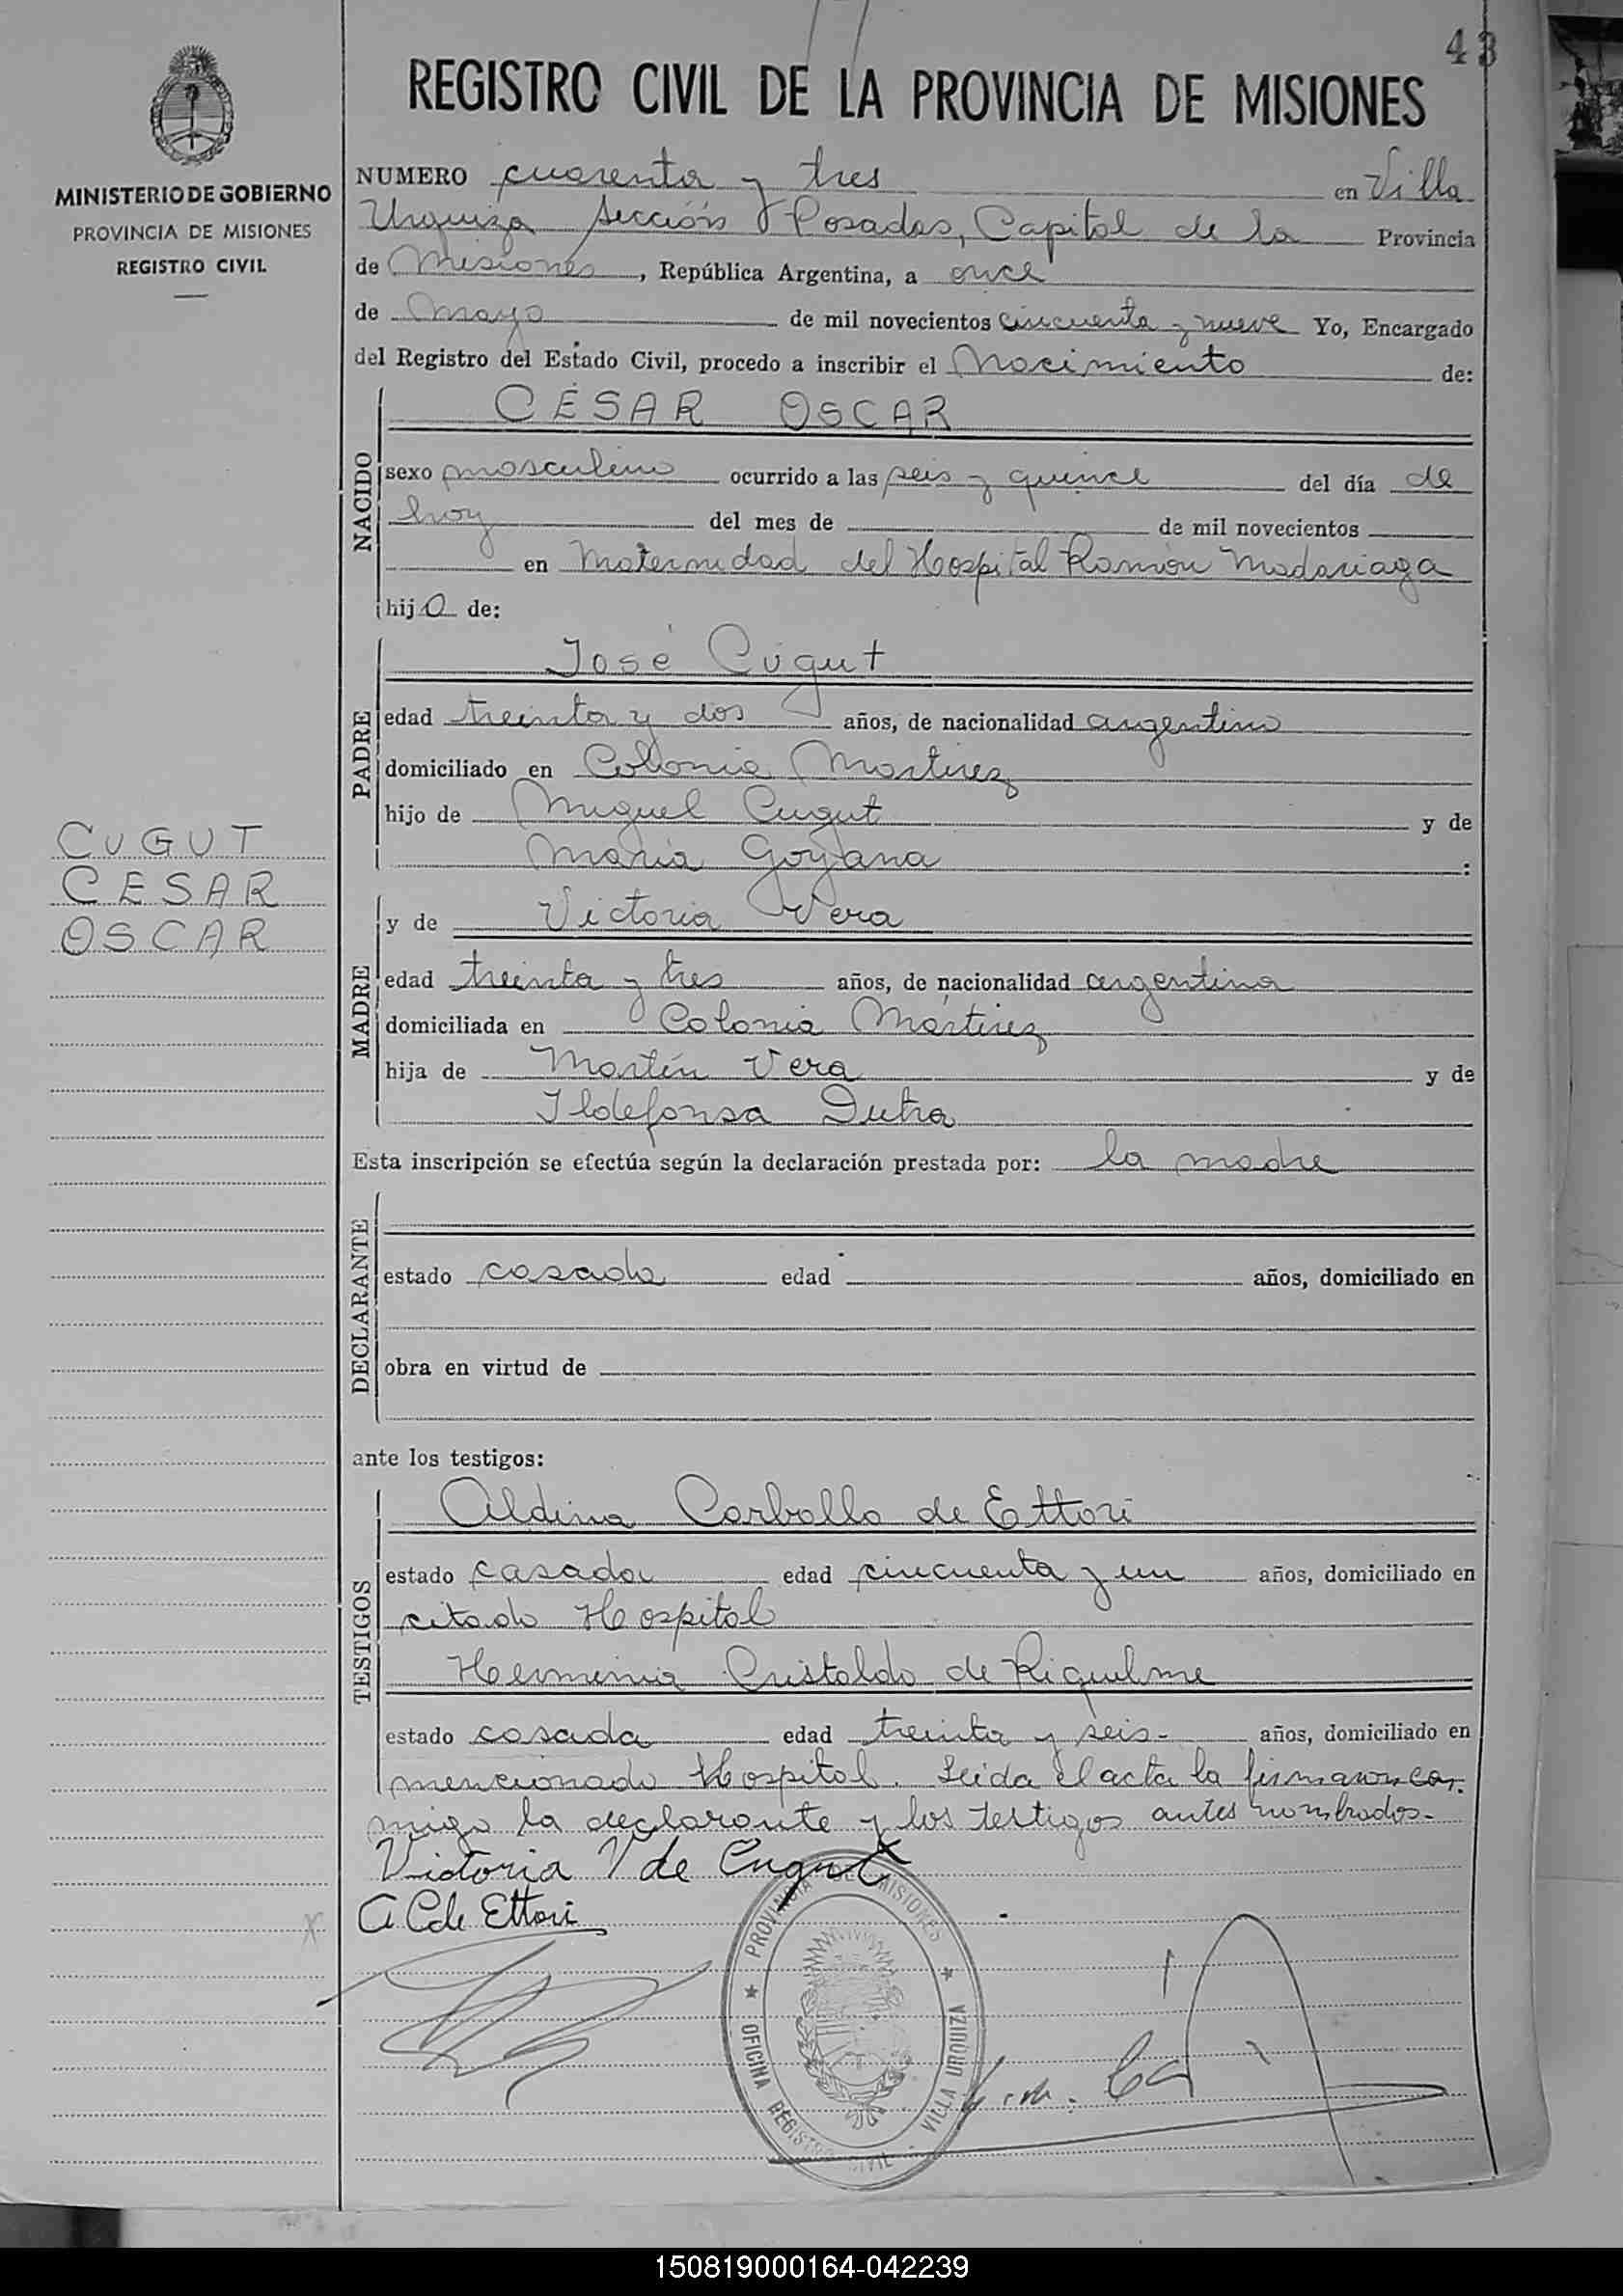 43
REGISTRO CIVIL DE LA PROVINCIA DE MISIONES
MINISTERIO DE GOBIERNO
PROVINCIA DE MISIONES
REGISTRO CIVIL
NUMERO cuarenta y tres en Villa
Urquiza Sección Posadas, Capital de la Provincia
de Misiones, República Argentina, a once
de mayo de mil novecientos cincuenta y nueve Yo, Encargado
del Registro del Estado Civil, procedo a inscribir el Nacimiento de:
NACIDO
CÉSAR OSCAR
sexo masculino ocurrido a las seis y quince del día de
hoy del mes de de mil novecientos
en Maternidad del Hospital Ramón Madariaga
hijo de:
PADRE
José Cúgut
edad treinta y dos años, de nacionalidad argentino
domiciliado en Colonia Martirez
hijo de Miguel Cugut y de
María Goyana :
CUGUT
CESAR
OSCAR
MADRE
y de Victoria Vera
edad treinta y tres años, de nacionalidad argentina
domiciliada en Colonia Mártirez
hija de Martín Vera y de
Ildefonsa Dutra
Esta inscripción se efectúa según la declaración prestada por: la madre
DECLARANTE
estado casada edad años, domiciliado en
obra en virtud de
ante los testigos:
TESTIGOS
Aldina Carballo de Ettori
estado casada edad cincuenta y un años, domiciliado en
citado Hospital
Herminia Cristaldo de Riquelme
estado casada edad treinta y seis- años, domiciliado en
mencionado Hospital. Leida el acta la firmaron con-
migo la declarante y los testigos antes nombrados-
Victoria V de Cugut
A C de Ettori
PROVINCIA DE MISIONES
OFICINA REGISTRO CIVIL - VILLA URQUIZA
150819000164-042239